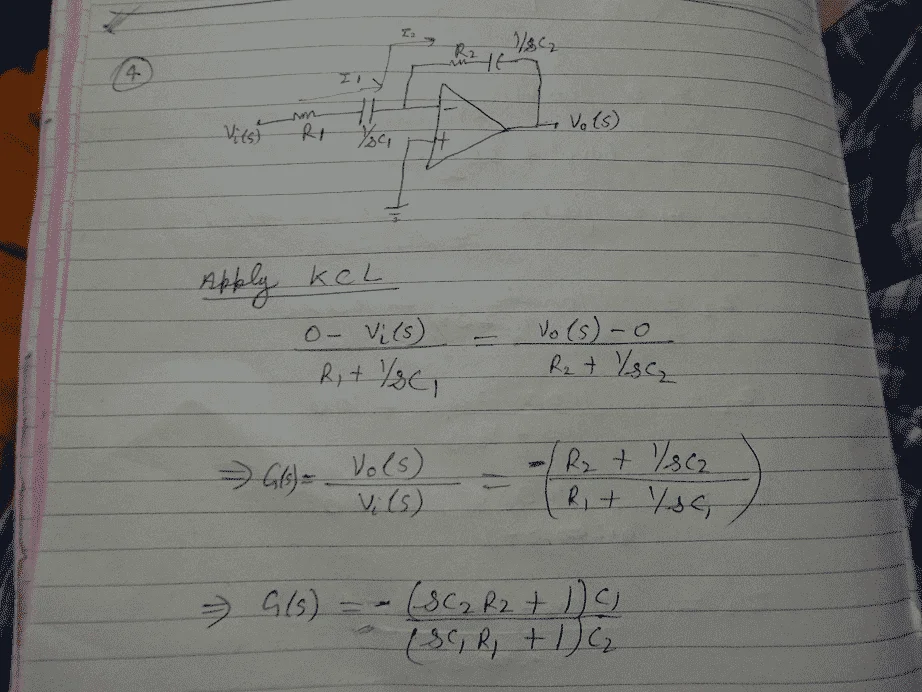 4
I₂
R₂ 1/sC₂
I₁
Vi(s) R₁ 1/sC₁ - + Vo(s)
Apply KCL
0 - Vi(s) / R₁ + 1/sC₁ = Vo(s) - 0 / R₂ + 1/sC₂
⇒ G(s) = Vo(s) / Vi(s) = -(R₂ + 1/sC₂ / R₁ + 1/sC₁)
⇒ G(s) = - (sC₂R₂ + 1)C₁ / (sC₁R₁ + 1)C₂